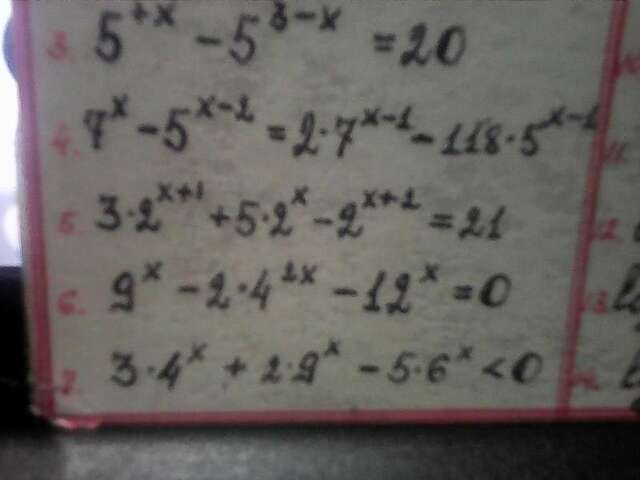 3. 5^{+x} - 5^{3-x} = 20
4. 7^x - 5^{x-2} = 2·7^{x-1} - 118·5^{x-1}
5. 3·2^{x+1} + 5·2^x - 2^{x+2} = 21
6. 9^x - 2·4^{2x} - 12^x = 0
7. 3·4^x + 2·9^x - 5·6^x < 0
10.
11.
12.
13.
14.